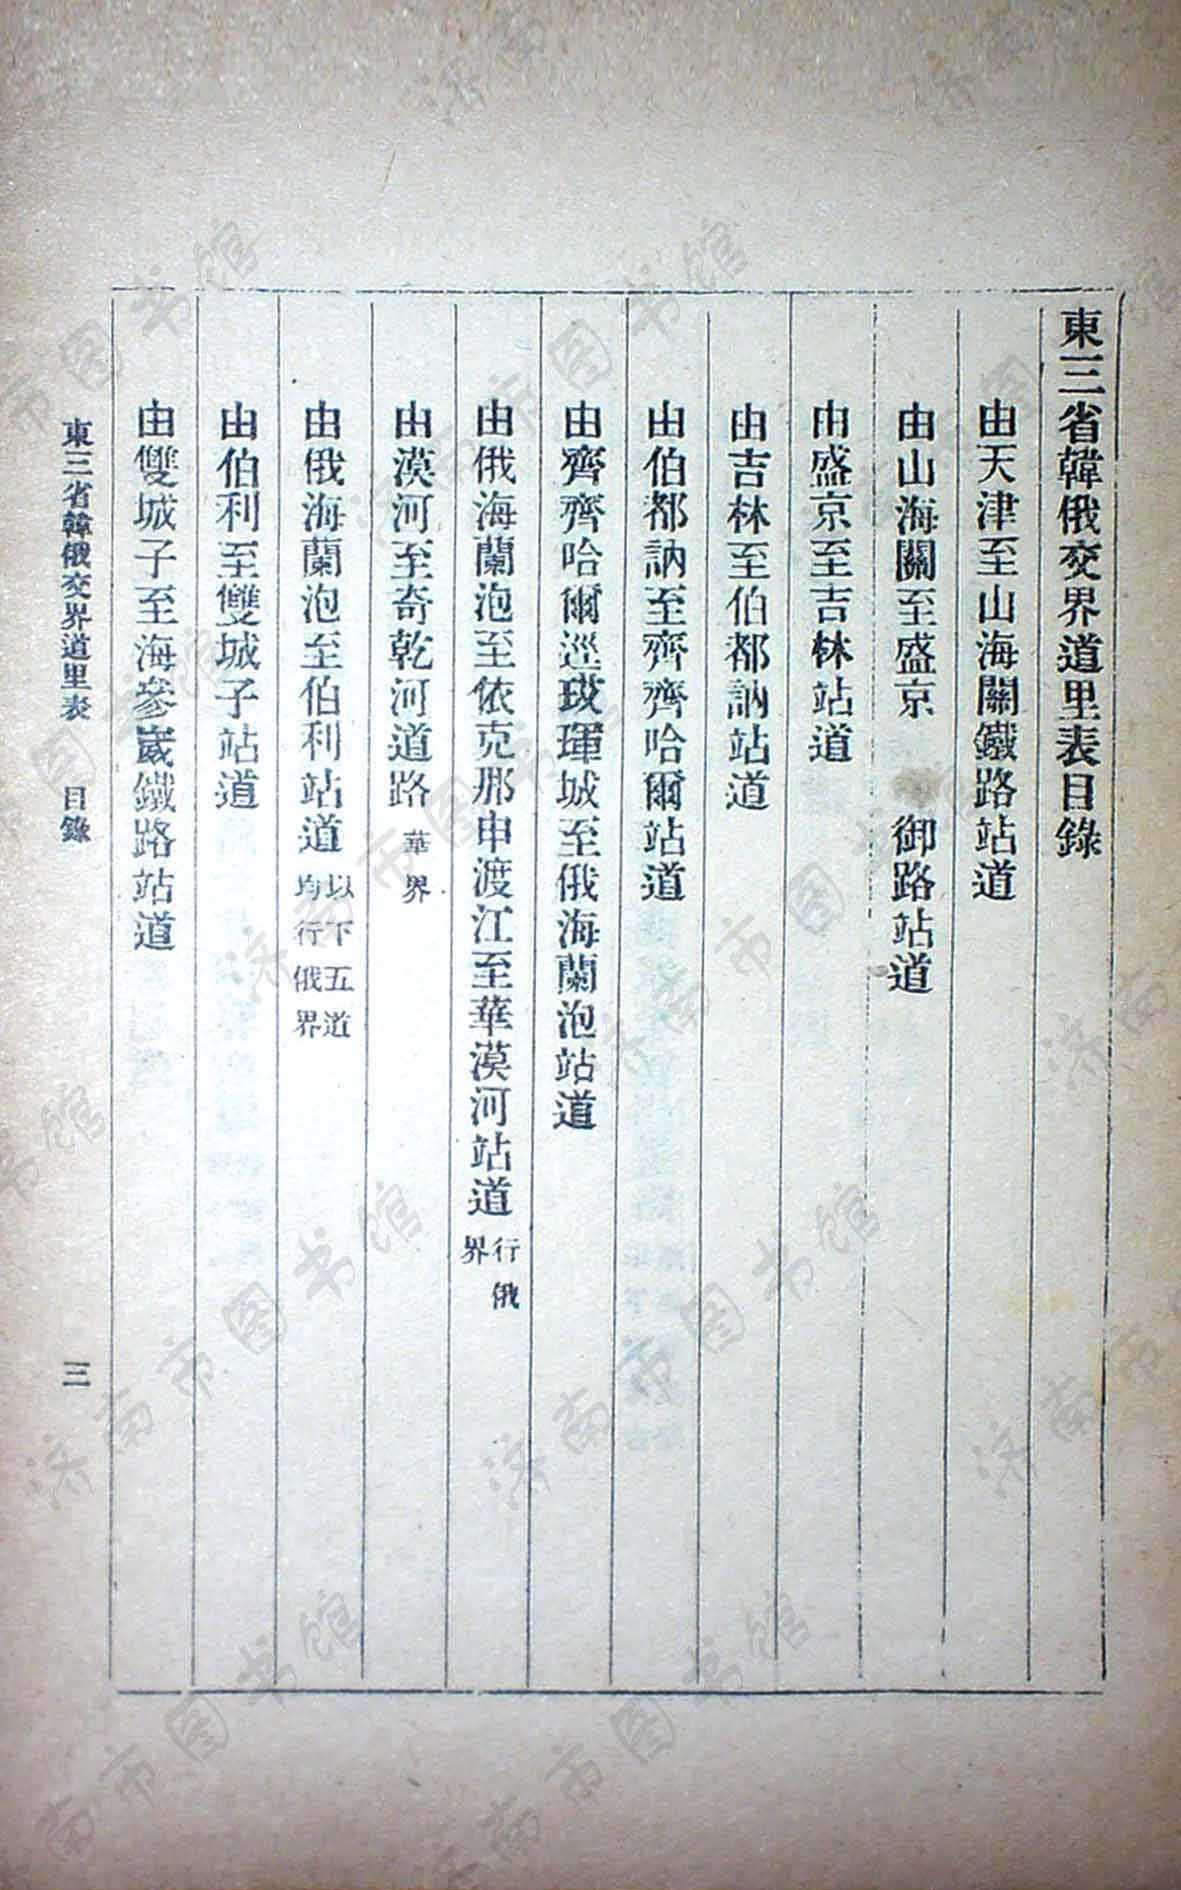 東三省韓俄交界道里表目錄
由天津至山海關鐵路站道
由山海關至盛京　御路站道
由盛京至吉林站道
由吉林至伯都訥站道
由伯都訥至齊齊哈爾站道
由齊齊哈爾逕璦琿城至俄海蘭泡站道
由俄海蘭泡至依克那申渡江至華漠河站道 行俄界
由漠河至奇乾河道路 華界
由俄海蘭泡至伯利站道 以下五道均行俄界
由伯利至雙城子站道
由雙城子至海參崴鐵路站道
東三省韓俄交界道里表　目錄　三
济南市图书馆